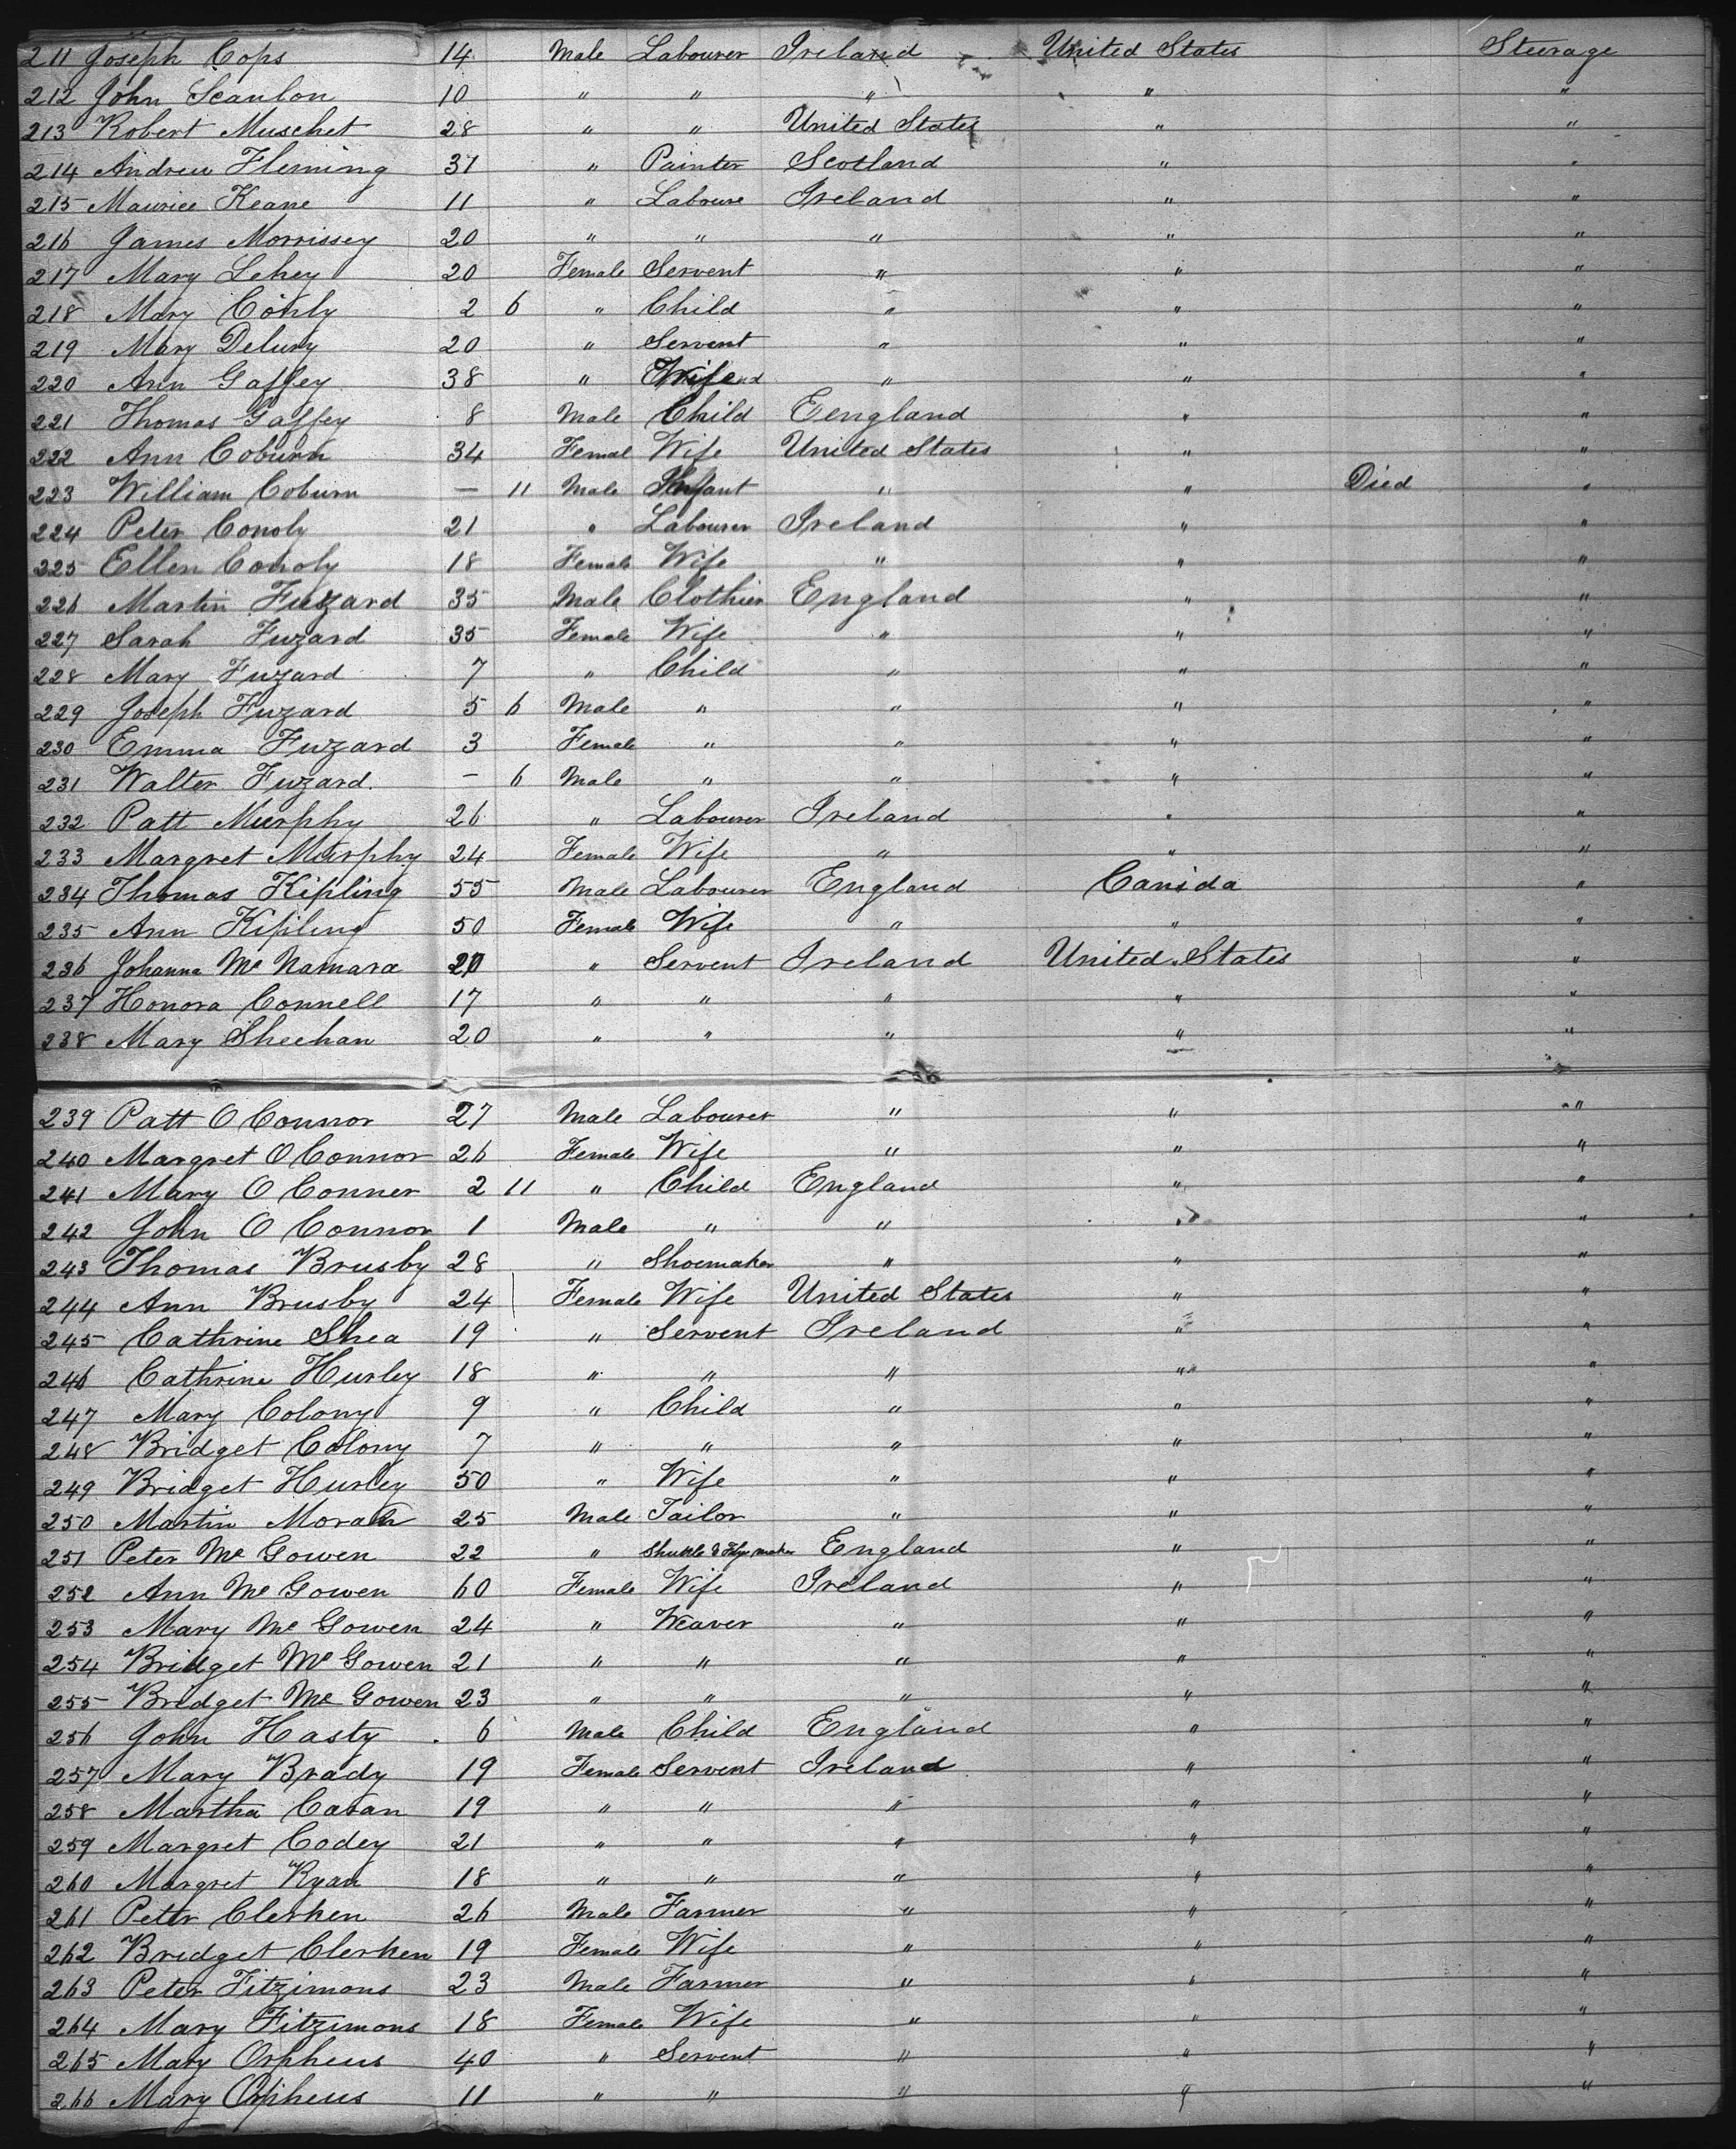 211 Joseph Cops 14 Male Labourer Ireland United States Steerage
212 John Scanlon 10 " " " " "
213 Robert Muschet 28 " " United States " "
214 Andrew Fleming 31 " Painter Scotland " "
215 Maurice Keane 11 " Laboure Ireland " "
216 James Morrissey 20 " " " " "
217 Mary Lehey 20 Female Servent " " "
218 Mary Conly 2 6 " Child " " "
219 Mary Delury 20 " Servent " " "
220 Ann Gaffey 38 " Wife " " "
221 Thomas Gaffey 8 Male Child Eengland " "
222 Ann Coburn 34 Femal Wife United States " "
223 William Coburn — 11 Male Infant " " Died "
224 Peter Conoly 21 " Labourer Ireland " "
225 Ellen Conoly 18 Female Wife " " "
226 Martin Fuzard 35 Male Clothier England " "
227 Sarah Fuzard 35 Female Wife " " "
228 Mary Fuzard 7 " Child " " "
229 Joseph Fuzard 5 6 Male " " " "
230 Emma Fuzard 3 Female " " " "
231 Walter Fuzard. — 6 Male " " " "
232 Patt Murphy 26 " Labourer Ireland " "
233 Margret Murphy 24 Female Wife " " "
234 Thomas Kipling 55 Male Labourer England Canida "
235 Ann Kipling 50 Female Wife " " "
236 Johanna Mc Namara 20 " Servent Ireland United States "
237 Honora Connell 17 " " " " "
238 Mary Sheehan 20 " " " " "
239 Patt O Connor 27 Male Labourer " " "
240 Margret O Connor 26 Female Wife " " "
241 Mary O Conner 2 11 " Child England " "
242 John O Connor 1 Male " " " "
243 Thomas Brusby 28 " Shoemaker " " "
244 Ann Brusby 24 Female Wife United States " "
245 Cathrine Shea 19 " Servent Ireland " "
246 Cathrine Hurley 18 " " " " "
247 Mary Colony 9 " Child " " "
248 Bridget Colony 7 " " " " "
249 Bridget Hurley 50 " Wife " " "
250 Martin Moran 25 Male Tailor " " "
251 Peter Mc Gowen 22 " Shuttle & maker England " "
252 Ann Mc Gowen 60 Female Wife Ireland " "
253 Mary Mc Gowen 24 " Weaver " " "
254 Bridget Mc Gowen 21 " " " " "
255 Bridget Mc Gowen 23 " " " " "
256 John Hasty 6 Male Child England " "
257 Mary Brady 19 Female Servent Ireland " "
258 Martha Caran 19 " " " " "
259 Margret Codey 21 " " " " "
260 Margret Ryan 18 " " " " "
261 Peter Clerken 26 Male Farmer " " "
262 Bridget Clerken 19 Female Wife " " "
263 Peter Fitzimons 23 Male Farmer " " "
264 Mary Fitzimons 18 Female Wife " " "
265 Mary Orpheus 40 " Servent " " "
266 Mary Orpheus 11 " " " " "